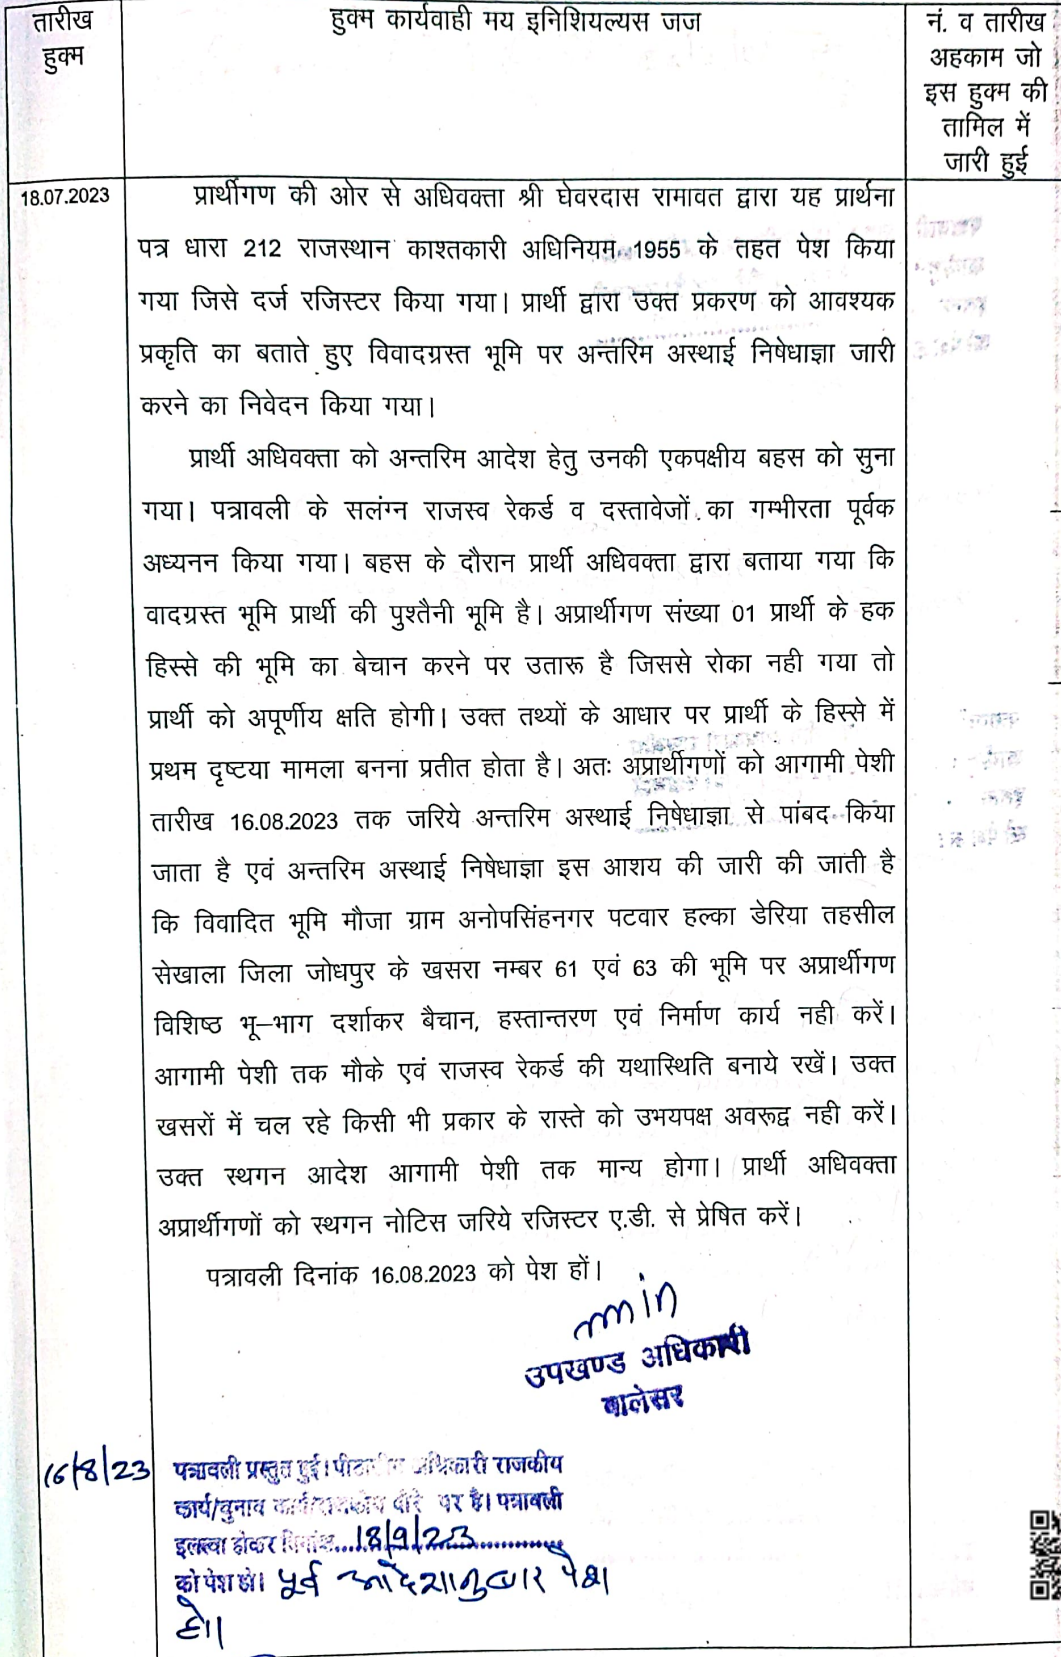 तारीख
हुक्म
हुक्म कार्यवाही मय इनिशियल्यस जज
नं. व तारीख
अहकाम जो
इस हुक्म की
तामिल में
जारी हुई
18.07.2023
प्रार्थीगण की ओर से अधिवक्ता श्री घेवरदास रामावत द्वारा यह प्रार्थना
पत्र धारा 212 राजस्थान काश्तकारी अधिनियम 1955 के तहत पेश किया
गया जिसे दर्ज रजिस्टर किया गया। प्रार्थी द्वारा उक्त प्रकरण को आवश्यक
प्रकृति का बताते हुए विवादग्रस्त भूमि पर अन्तरिम अस्थाई निषेधाज्ञा जारी
करने का निवेदन किया गया।
प्रार्थी अधिवक्ता को अन्तरिम आदेश हेतु उनकी एकपक्षीय बहस को सुना
गया। पत्रावली के सलंग्न राजस्व रेकर्ड व दस्तावेजों का गम्भीरता पूर्वक
अध्यनन किया गया। बहस के दौरान प्रार्थी अधिवक्ता द्वारा बताया गया कि
वादग्रस्त भूमि प्रार्थी की पुश्तैनी भूमि है। अप्रार्थीगण संख्या 01 प्रार्थी के हक
हिस्से की भूमि का बेचान करने पर उतारू है जिससे रोका नही गया तो
प्रार्थी को अपूर्णीय क्षति होगी। उक्त तथ्यों के आधार पर प्रार्थी के हिस्से में
प्रथम दृष्टया मामला बनना प्रतीत होता है। अतः अप्रार्थीगणों को आगामी पेशी
तारीख 16.08.2023 तक जरिये अन्तरिम अस्थाई निषेधाज्ञा से पांबद किया
जाता है एवं अन्तरिम अस्थाई निषेधाज्ञा इस आशय की जारी की जाती है
कि विवादित भूमि मौजा ग्राम अनोपसिंहनगर पटवार हल्का डेरिया तहसील
सेखाला जिला जोधपुर के खसरा नम्बर 61 एवं 63 की भूमि पर अप्रार्थीगण
विशिष्ठ भू–भाग दर्शाकर बैचान, हस्तान्तरण एवं निर्माण कार्य नही करें।
आगामी पेशी तक मौके एवं राजस्व रेकर्ड की यथास्थिति बनाये रखें। उक्त
खसरों में चल रहे किसी भी प्रकार के रास्ते को उभयपक्ष अवरूद्व नही करें।
उक्त स्थगन आदेश आगामी पेशी तक मान्य होगा। प्रार्थी अधिवक्ता
अप्रार्थीगणों को स्थगन नोटिस जरिये रजिस्टर ए.डी. से प्रेषित करें।
पत्रावली दिनांक 16.08.2023 को पेश हों।
उपखण्ड अधिकारी
बालेसर
16/8/23
पत्रावली प्रस्तुत हुई। अधिकारी राजकीय
कार्य/चुनाव दौरे पर है। पत्रावली
इलत्वा होकर दिनांक....18/9/223............
को पेश हो। पूर्व आदेशानुसार पेश
हो।